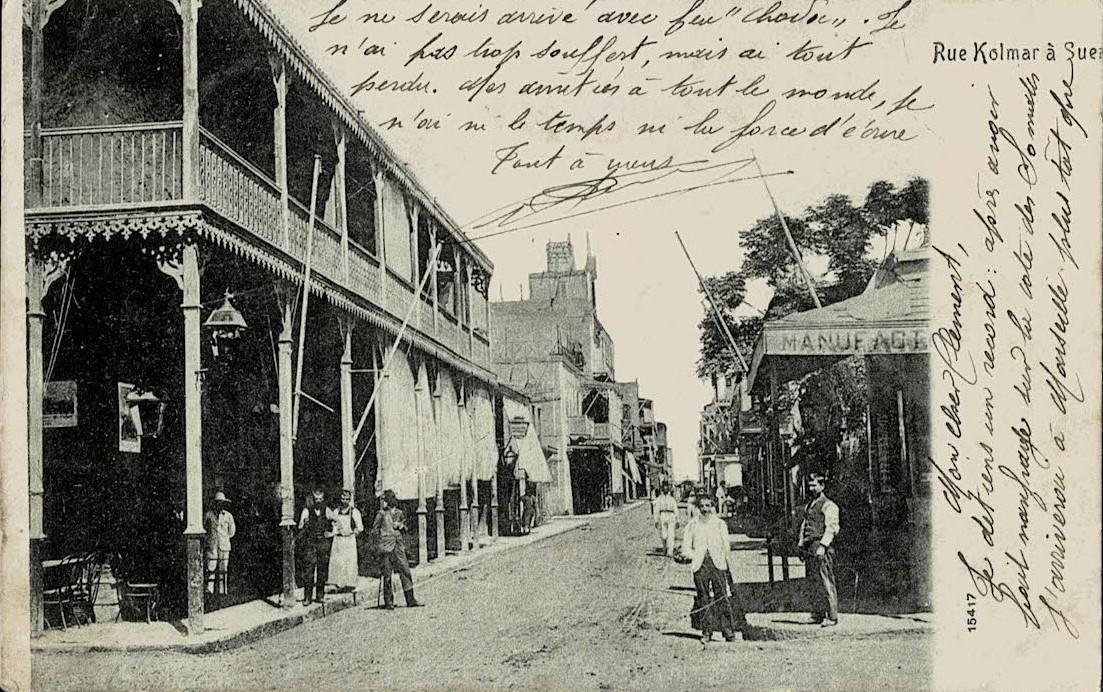 Rue Kolmar à Suez
Mon cher Clément,
Je détiens un record : après avoir
fait naufrage sur la côte des Somalis
j'arriverai à Marseille plus tôt que
je ne serais arrivé avec feu "Chodoc". Je
n'ai pas trop souffert, mais ai tout
perdu. Mes amitiés à tout le monde, je
n'ai ni le temps ni la force d'écrire
Tout à vous
MANUFACT
15417